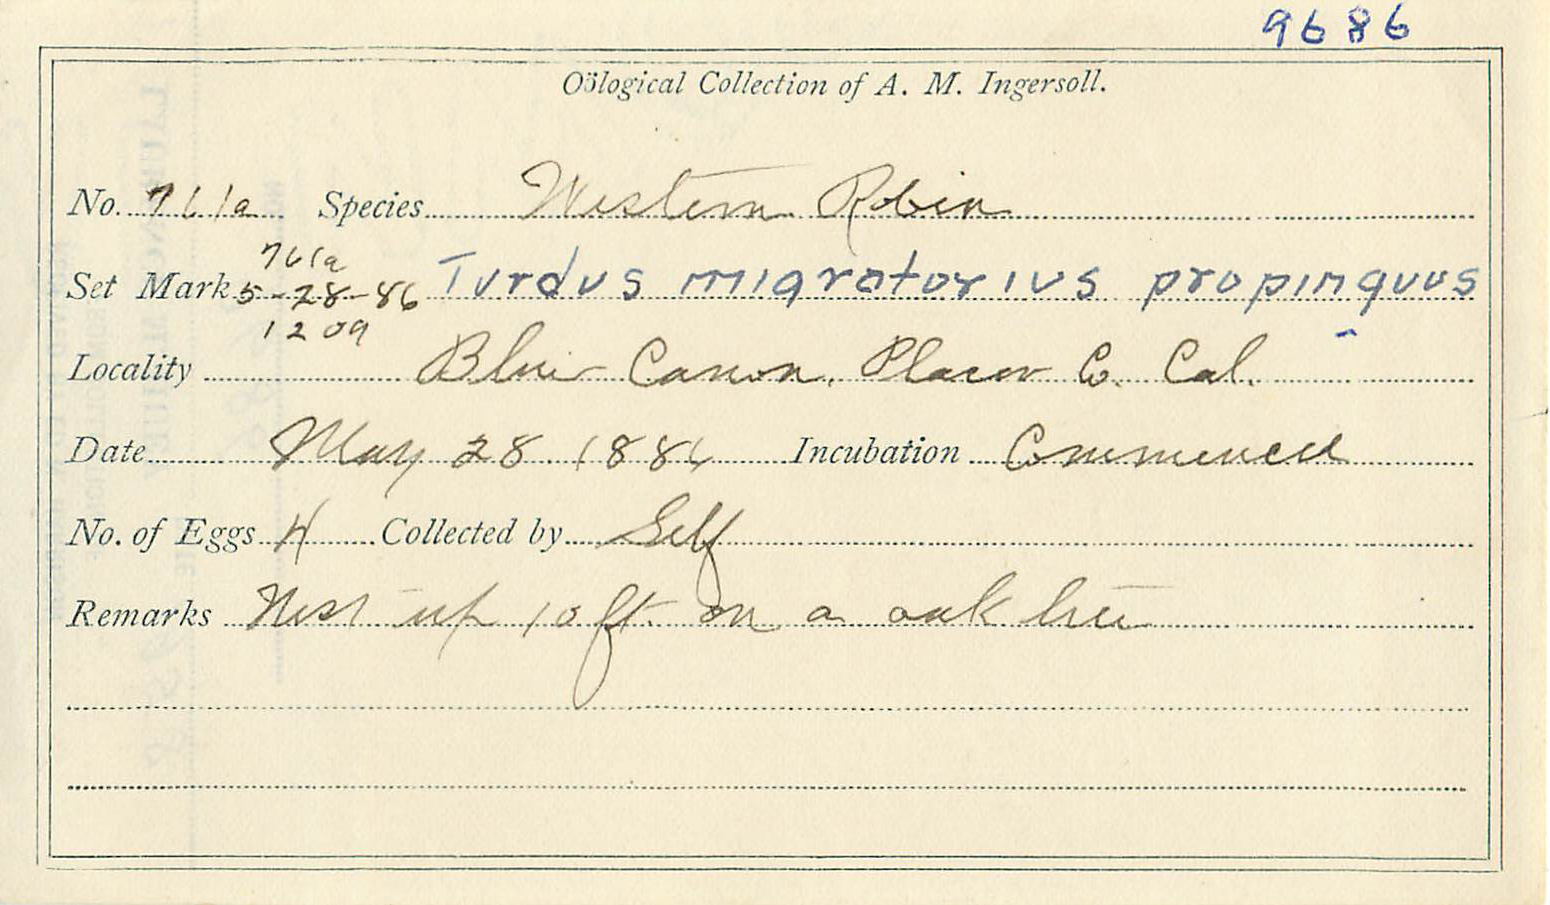 9686
Oölogical Collection of A. M. Ingersoll.
No. 761a Species Western Robin
761a
Set Mark 5-28-86 Turdus migratorius propinquus
1209
Locality Blue Canon, Placer Co. Cal.
Date May 28. 1886 Incubation Commenced
No. of Eggs 4 Collected by Self
Remarks Nest up 10 ft. on a oak tree